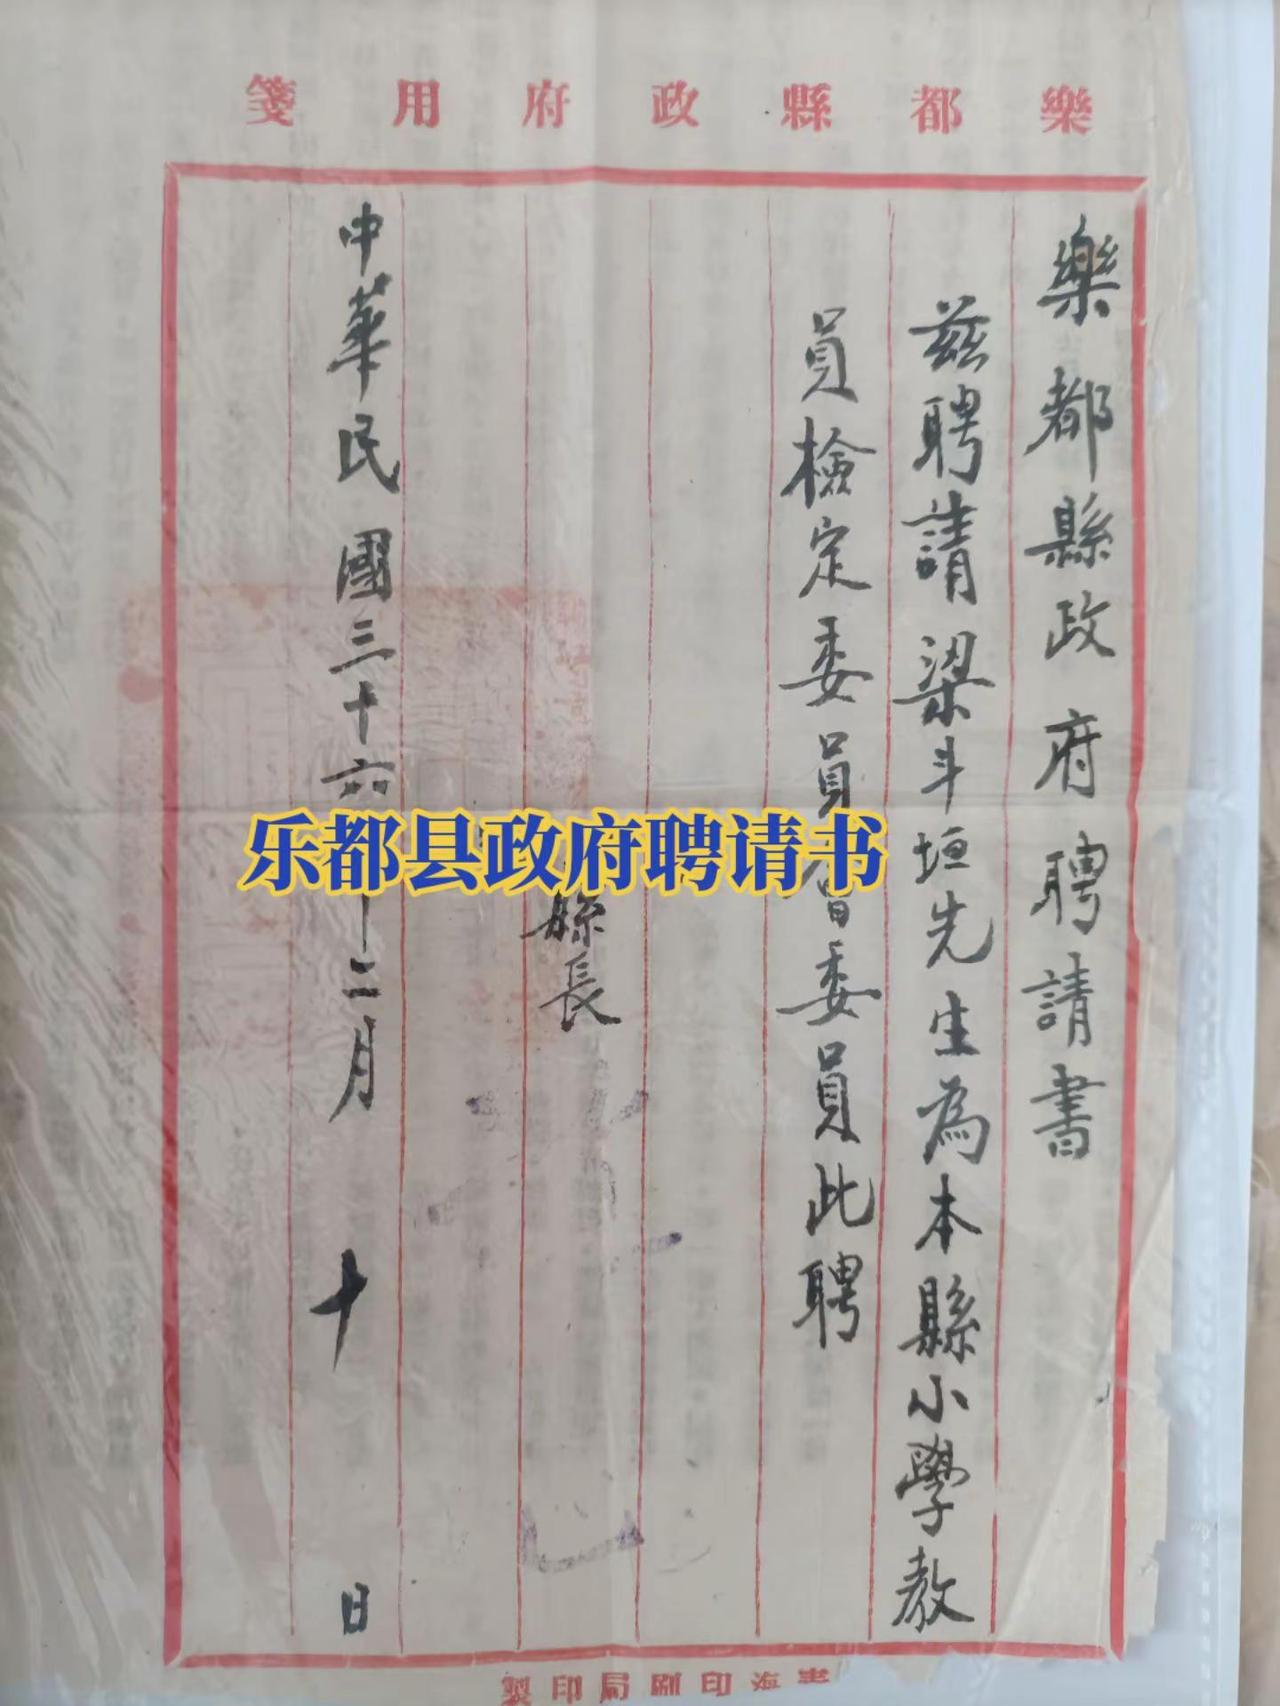 樂都縣政府用箋
樂都縣政府聘請書
茲聘請梁斗垣先生為本縣小學教
員檢定委員會委員此聘
縣長
中華民國三十六年十二月十日
乐都县政府聘请书
青海印刷局印製